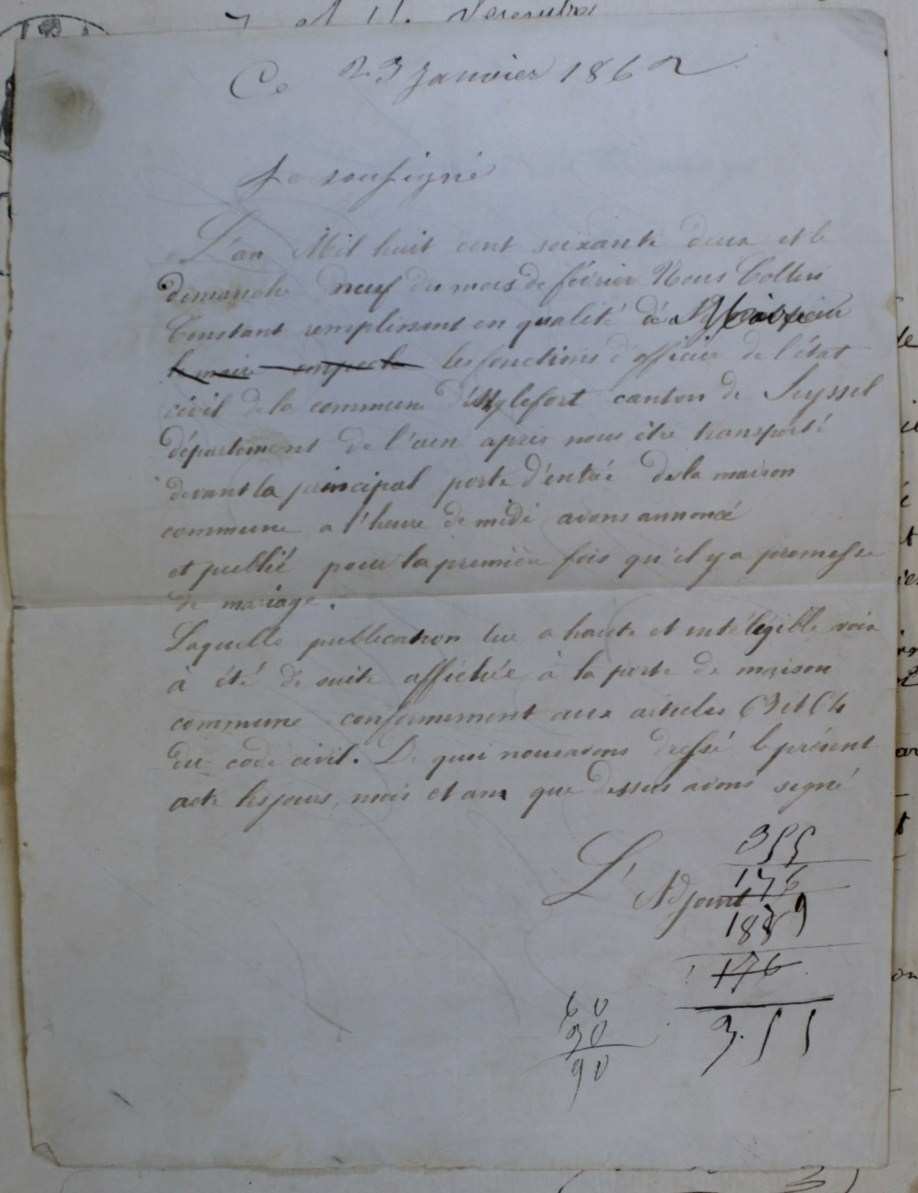 Ce 23 Janvier 1862
Je sousigné
L'an Mil huit cent soixante deux et le
dimanche neuf du mois de février Nous Collin
Constant remplissant en qualité de
le maire empeché les fonctions d'officier de l'état
civil de la commune d'Anglefort canton de Seyssel
département de l'ain apres nous être transporté
devant la principal porte d'entrée de la maison
commune a l'heure de midi avons annoncé
et publié pour la première fois qu'il y a promesse
de mariage.
Laquelle publication lue a haute et intélégible voix
à été de suite affichée à la porte de maison
commune conformement aux articles 63 et 64
du code civil. De quoi nous avons dressé le présent
acte les jours, mois et ans que dessus avons signé
L'Adjoint
355
176
179
176
3.55
60
30
90